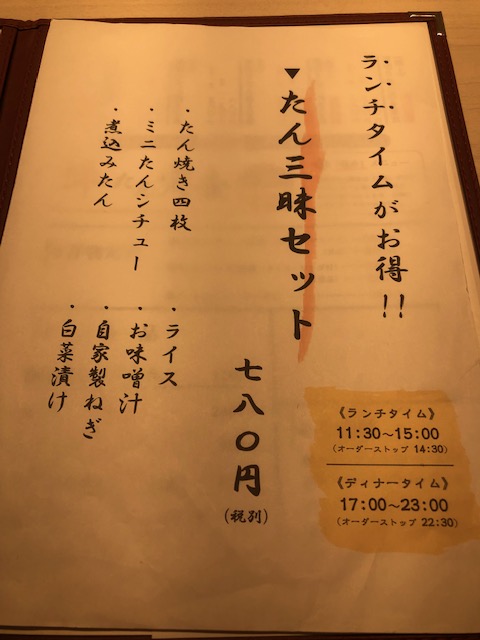 ランチタイムがお得!!
▼たん三昧セット
七八〇円
(税別)
・たん焼き四枚
・ミニたんシチュー
・煮込みたん
・ライス
・お味噌汁
・自家製ねぎ
・白菜漬け
《ランチタイム》
11:30～15:00
(オーダーストップ 14:30)
《ディナータイム》
17:00～23:00
(オーダーストップ 22:30)